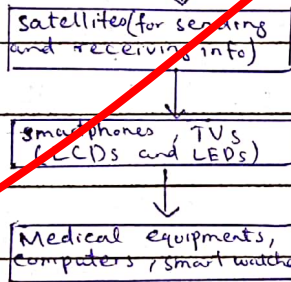 satellites(for sending
and receiving info)
smartphones, TVs
(LCDs and LEDs)
Medical equipments,
computers, smart watche